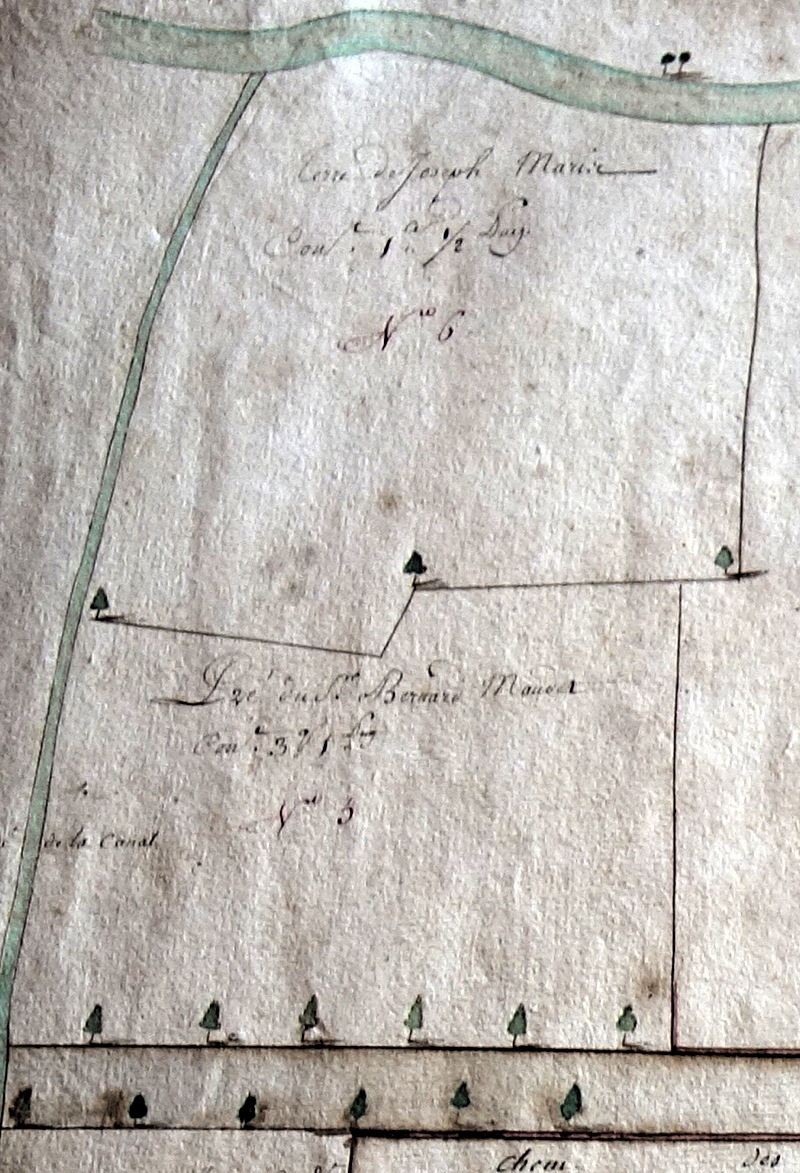 Terre de Joseph Marie
Cont. 1 1/2
No 6
Pré du Sr Bernard Maudet
Cont. 3 1
No
de la Canal
chem. des